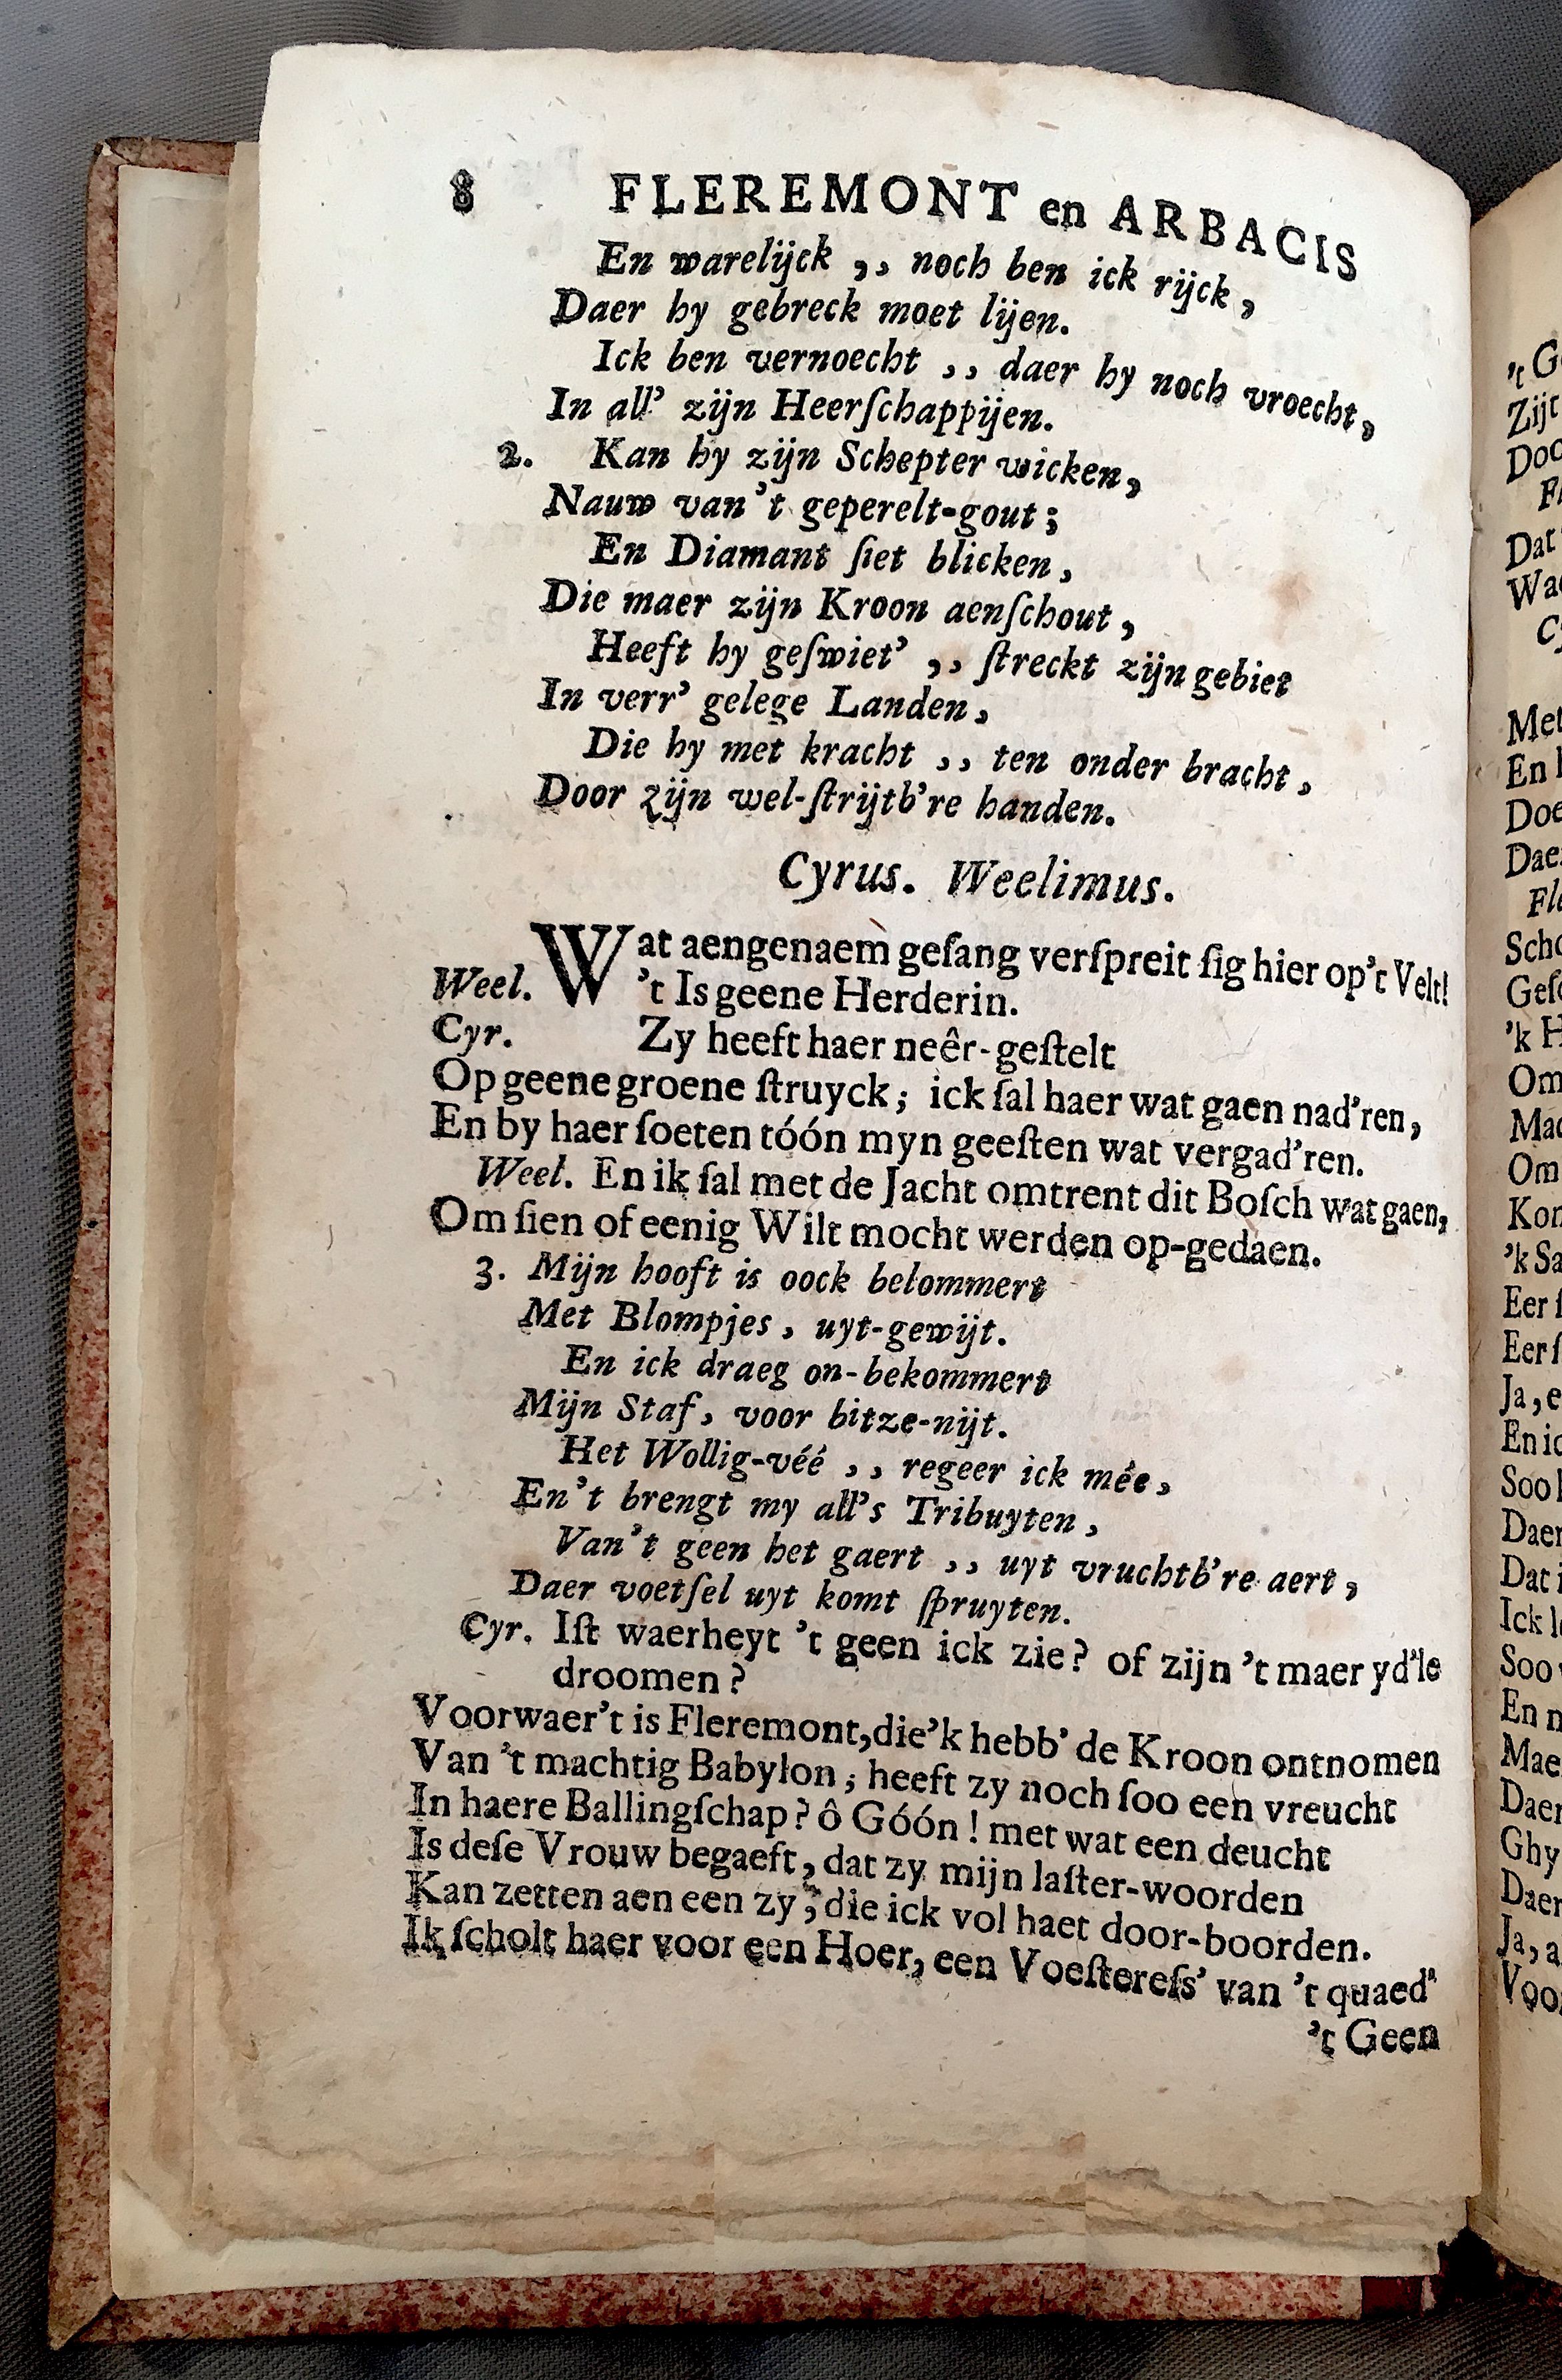 8 FLEREMONT en ARBACIS
En warelijck ,, noch ben ick rijck,
Daer hy gebreck moet lijen.
Ick ben vernoecht ,, daer hy noch vroecht,
In all' zijn Heerſchappijen.
2. Kan hy zijn Schepter wicken,
Nauw van't geperelt-gout;
En Diamant ſiet blicken,
Die maer zijn Kroon aenſchout,
Heeft hy geſwiet' ,, ſtreckt zijn gebiet
In verr' gelege Landen,
Die hy met kracht ,, ten onder bracht,
Door zijn wel-ſtrijtb're handen.
Cyrus. Weelimus.
Wat aengenaem geſang verſpreit ſig hier op't Velt!
Weel. 't Is geene Herderin.
Cyr. Zy heeft haer neêr-geſtelt
Op geene groene ſtruyck; ick ſal haer wat gaen nad'ren,
En by haer ſoeten tóón myn geeſten wat vergad'ren.
Weel. En ik ſal met de Jacht omtrent dit Boſch wat gaen,
Om ſien of eenig Wilt mocht werden op-gedaen.
3. Mijn hooft is oock belommert
Met Blompjes, uyt-gewijt.
En ick draeg on-bekommert
Mijn Staf, voor bitze-nijt.
Het Wollig-véé ,, regeer ick mée,
En't brengt my all's Tribuyten,
Van't geen het gaert ,, uyt vruchtb're aert,
Daer voetſel uyt komt ſpruyten.
Cyr. Iſt waerheyt 't geen ick zie? of zijn 't maer yd'le
droomen?
Voorwaer't is Fleremont, die'k hebb' de Kroon ontnomen
Van 't machtig Babylon; heeft zy noch ſoo een vreucht
In haere Ballingſchap? ô Góón! met wat een deucht
Is deſe Vrouw begaeft, dat zy mijn laſter-woorden
Kan zetten aen een zy, die ick vol haet door-boorden.
Ik ſcholt haer voor een Hoer, een Voeſtereſs' van 't quaed'
't Geen
't G
Zijt
Doo
Fl
Dat
Wa
C
Met
En
Doe
Dae
Fle
Scho
Geſ
'k H
Om
Mac
Om
Kon
'k Sa
Eer ſ
Eer ſ
Ja, e
En ic
Soo
Daer
Dat i
Ick l
Soo
En n
Mae
Daer
Ghy
Daer
Ja, a
Voo